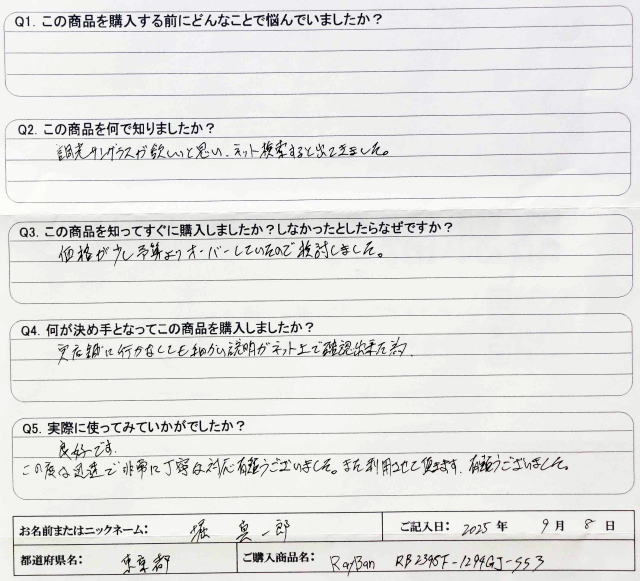 Q1. この商品を購入する前にどんなことで悩んでいましたか？
Q2. この商品を何で知りましたか？
調光サングラスが欲しいと思い、ネット検索すると出てきました。
Q3. この商品を知ってすぐに購入しましたか？しなかったとしたらなぜですか？
価格が少し予算よりオーバーしていたので検討しました。
Q4. 何が決め手となってこの商品を購入しましたか？
実店舗に行かなくても細かい説明がネット上で確認出来た為.
Q5. 実際に使ってみていかがでしたか？
良好です.
この度は迅速で非常に丁寧な対応有難うございました。また利用させて頂きます. 有難うございました。
お名前またはニックネーム： 堀 真一郎 ご記入日： 2025 年 9 月 8 日
都道府県名： 東京都 ご購入商品名： RayBan RB2398F-1294GJ-S53